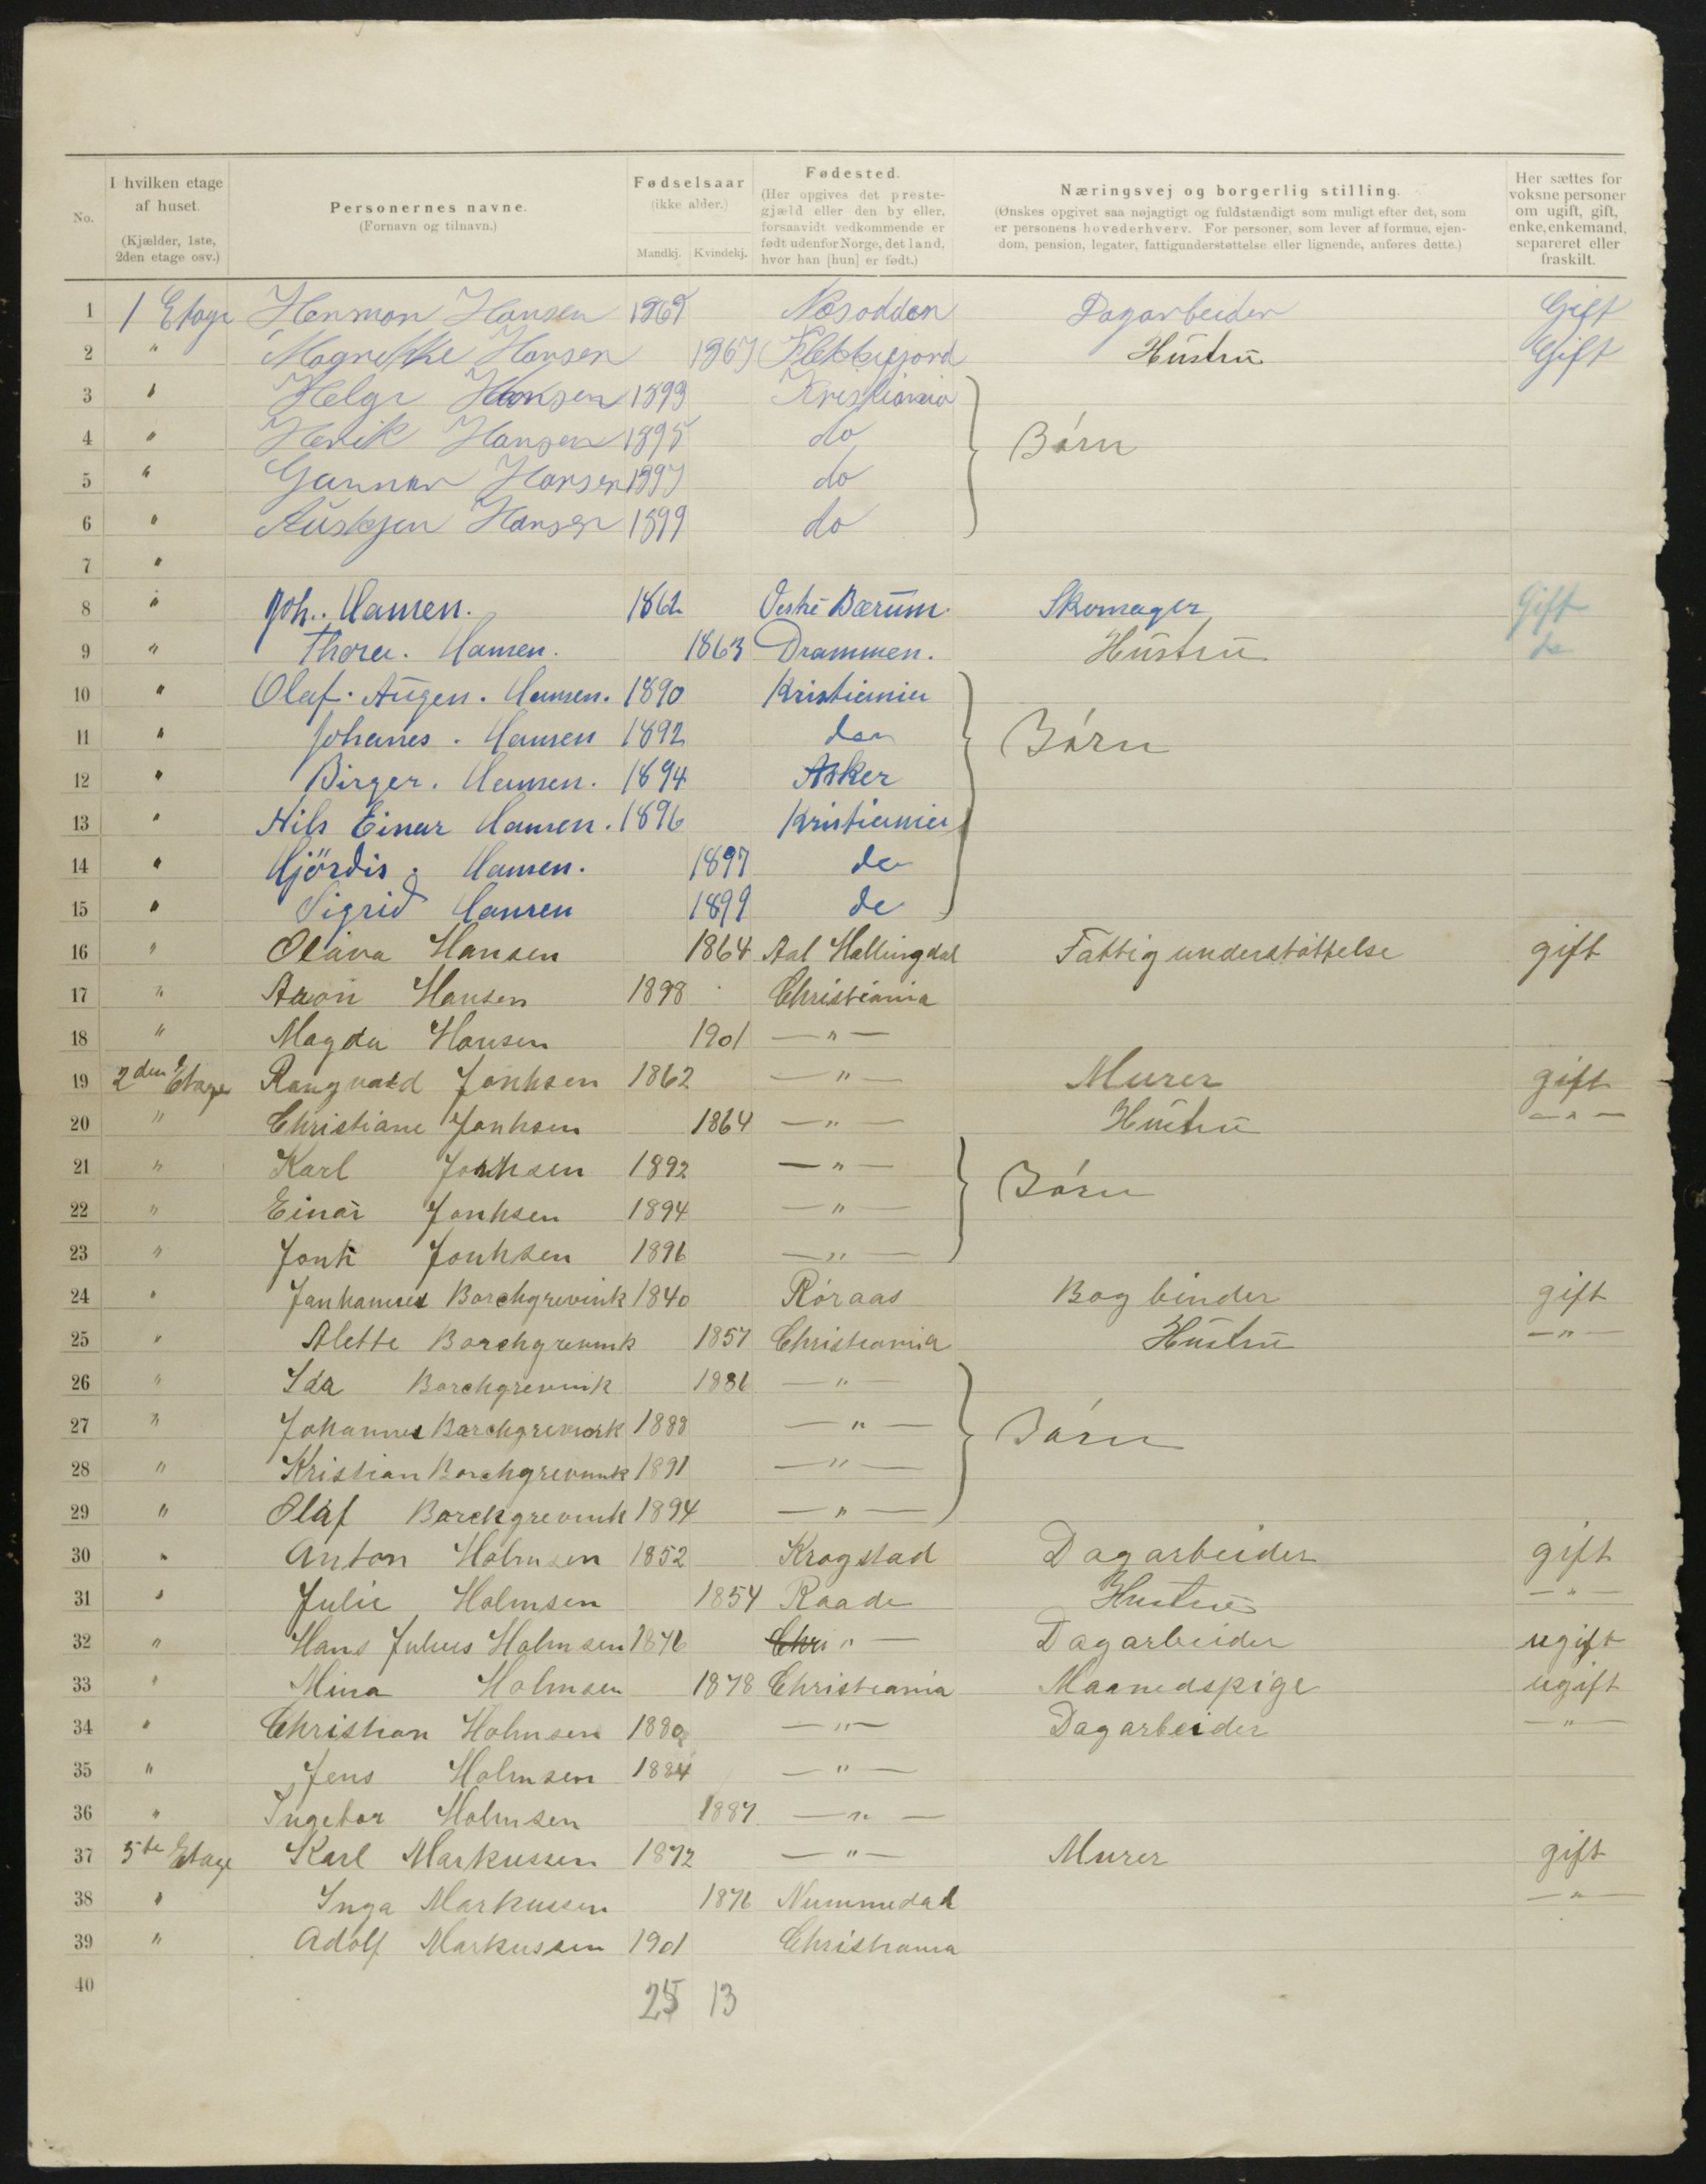 No.
I hvilken etage af huset. (Kjælder, 1ste, 2den etage osv.)
Personernes navne. (Fornavn og tilnavn.)
Fødselsaar (ikke alder.) Mandkj. Kvindekj.
Fødested. (Her opgives det prestegjæld eller den by eller, forsaavidt vedkommende er født udenfor Norge, det land, hvor han [hun] er født.)
Næringsvej og borgerlig stilling. (Ønskes opgivet saa nøjagtigt og fuldstændigt som muligt efter det, som er personens hovederhverv. For personer, som lever af formue, ejendom, pension, legater, fattigunderstøttelse eller lignende, anføres dette.)
Her sættes for voksne personer om ugift, gift, enke, enkemand, separeret eller fraskilt.
1 1 Etage Herman Hansen Næsodden Dagarbeider Gift
2 " Magrethe Hansen 1867 Flekkefjord Hustru Gift
3 " Helge Hansen 1893 Kristiania
4 " Henrik Hansen 1895 do Børn
5 " Gunnar Hansen 1897 do
6 " Hansen 1899 do
7 "
8 " Joh. Hansen. 1862 Vestre Bærum Skomager Gift
9 " Thora. Hansen. 1863 Drammen. Hustru do
10 " Olaf. Augen. Hansen. 1890 Kristiania
11 " Johanes. Hansen 1892 do Børn
12 " Birger. Hansen. 1894 Asker
13 " Nils Einar Hansen. 1896 Kristiania
14 " Hjördis. Hansen. 1897 do
15 " Sigrid Hansen 1899 do
16 " Olava Hansen 1864 Aal Hallingdal Fattigunderstøttelse gift
17 " Aron Hansen 1898 Christiania
18 " Magda Hansen 1901 — " —
19 2den Etage Rangvald Jonhsen 1862 — " — Murer gift
20 " Christiane Jonhsen 1864 — " — Hustru — " —
21 " Karl Jonhsen 1892 — " —
22 " Einar Jonhsen 1894 — " — Børn
23 " Jonh Jonhsen 1896 — " —
24 " Janhannes Borchgrevink 1840 Røraas Bogbinder gift
25 " Alette Borchgrevink 1857 Christiania Hustru — " —
26 " Ida Borchgrevink 1886 — " —
27 " Johannes Borchgrevink 1888 — " — Børn
28 " Kristian Borchgrevink 1891 — " —
29 " Olaf Borchgrevink 1894 — " —
30 " Anton Holmsen 1852 Krogstad Dagarbeider gift
31 " Julie Holmsen 1854 Raade Hustru — " —
32 " Hans Julius Holmsen 1876 Chri " — Dagarbeider ugift
33 " Mina Holmsen 1878 Christiania Maanedspige ugift
34 " Christian Holmsen 1880 — " — Dagarbeider — " —
35 " Jens Holmsen 1884 — " —
36 " Ingebor Holmsen 1887 — " —
37 3de Etage Karl Markussen 1872 — " — Murer gift
38 " Inga Markussen 1876 Nummedal — " —
39 " Adolf Markussen 1901 Christiania
40
25 13